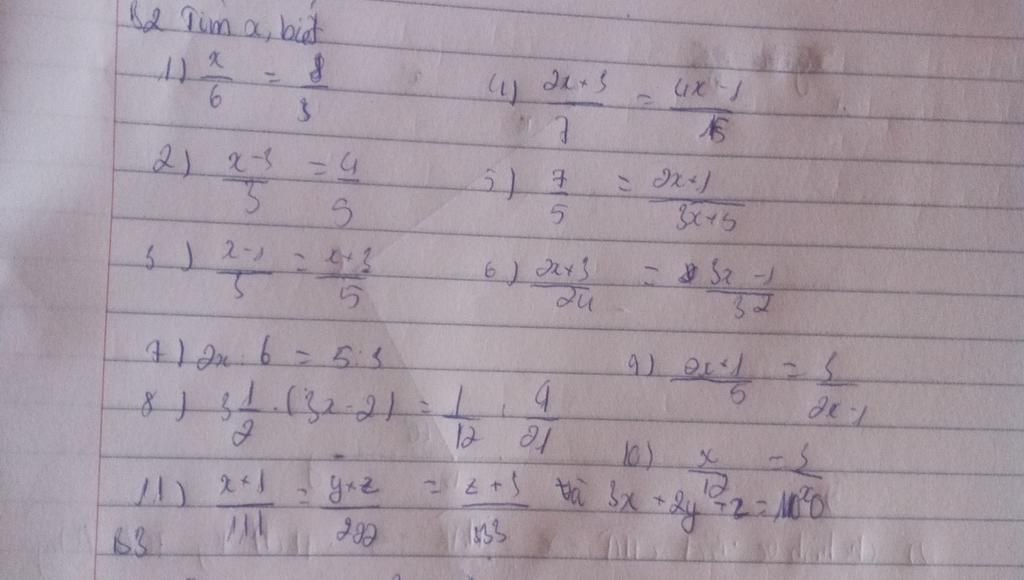 B2 Tìm x, biết
1) x/6 = 8/3
4) 2x+3/7 = 4x-1/15
2) x-3/5 = 4/5
5) 7/5 = 2x+1/3x+5
3) x-1/3 = x+3/5
6) 2x+3/24 = 3x-1/32
7) 2x : 6 = 5 : 3
9) 2x+1/5 = 3/2x-1
8) 3 1/2 : (3x-2) = 1/12 : 4/21
10)
11) x+1/111 = y+2/222 = z+3/333 và 3x+2y+z =
B3